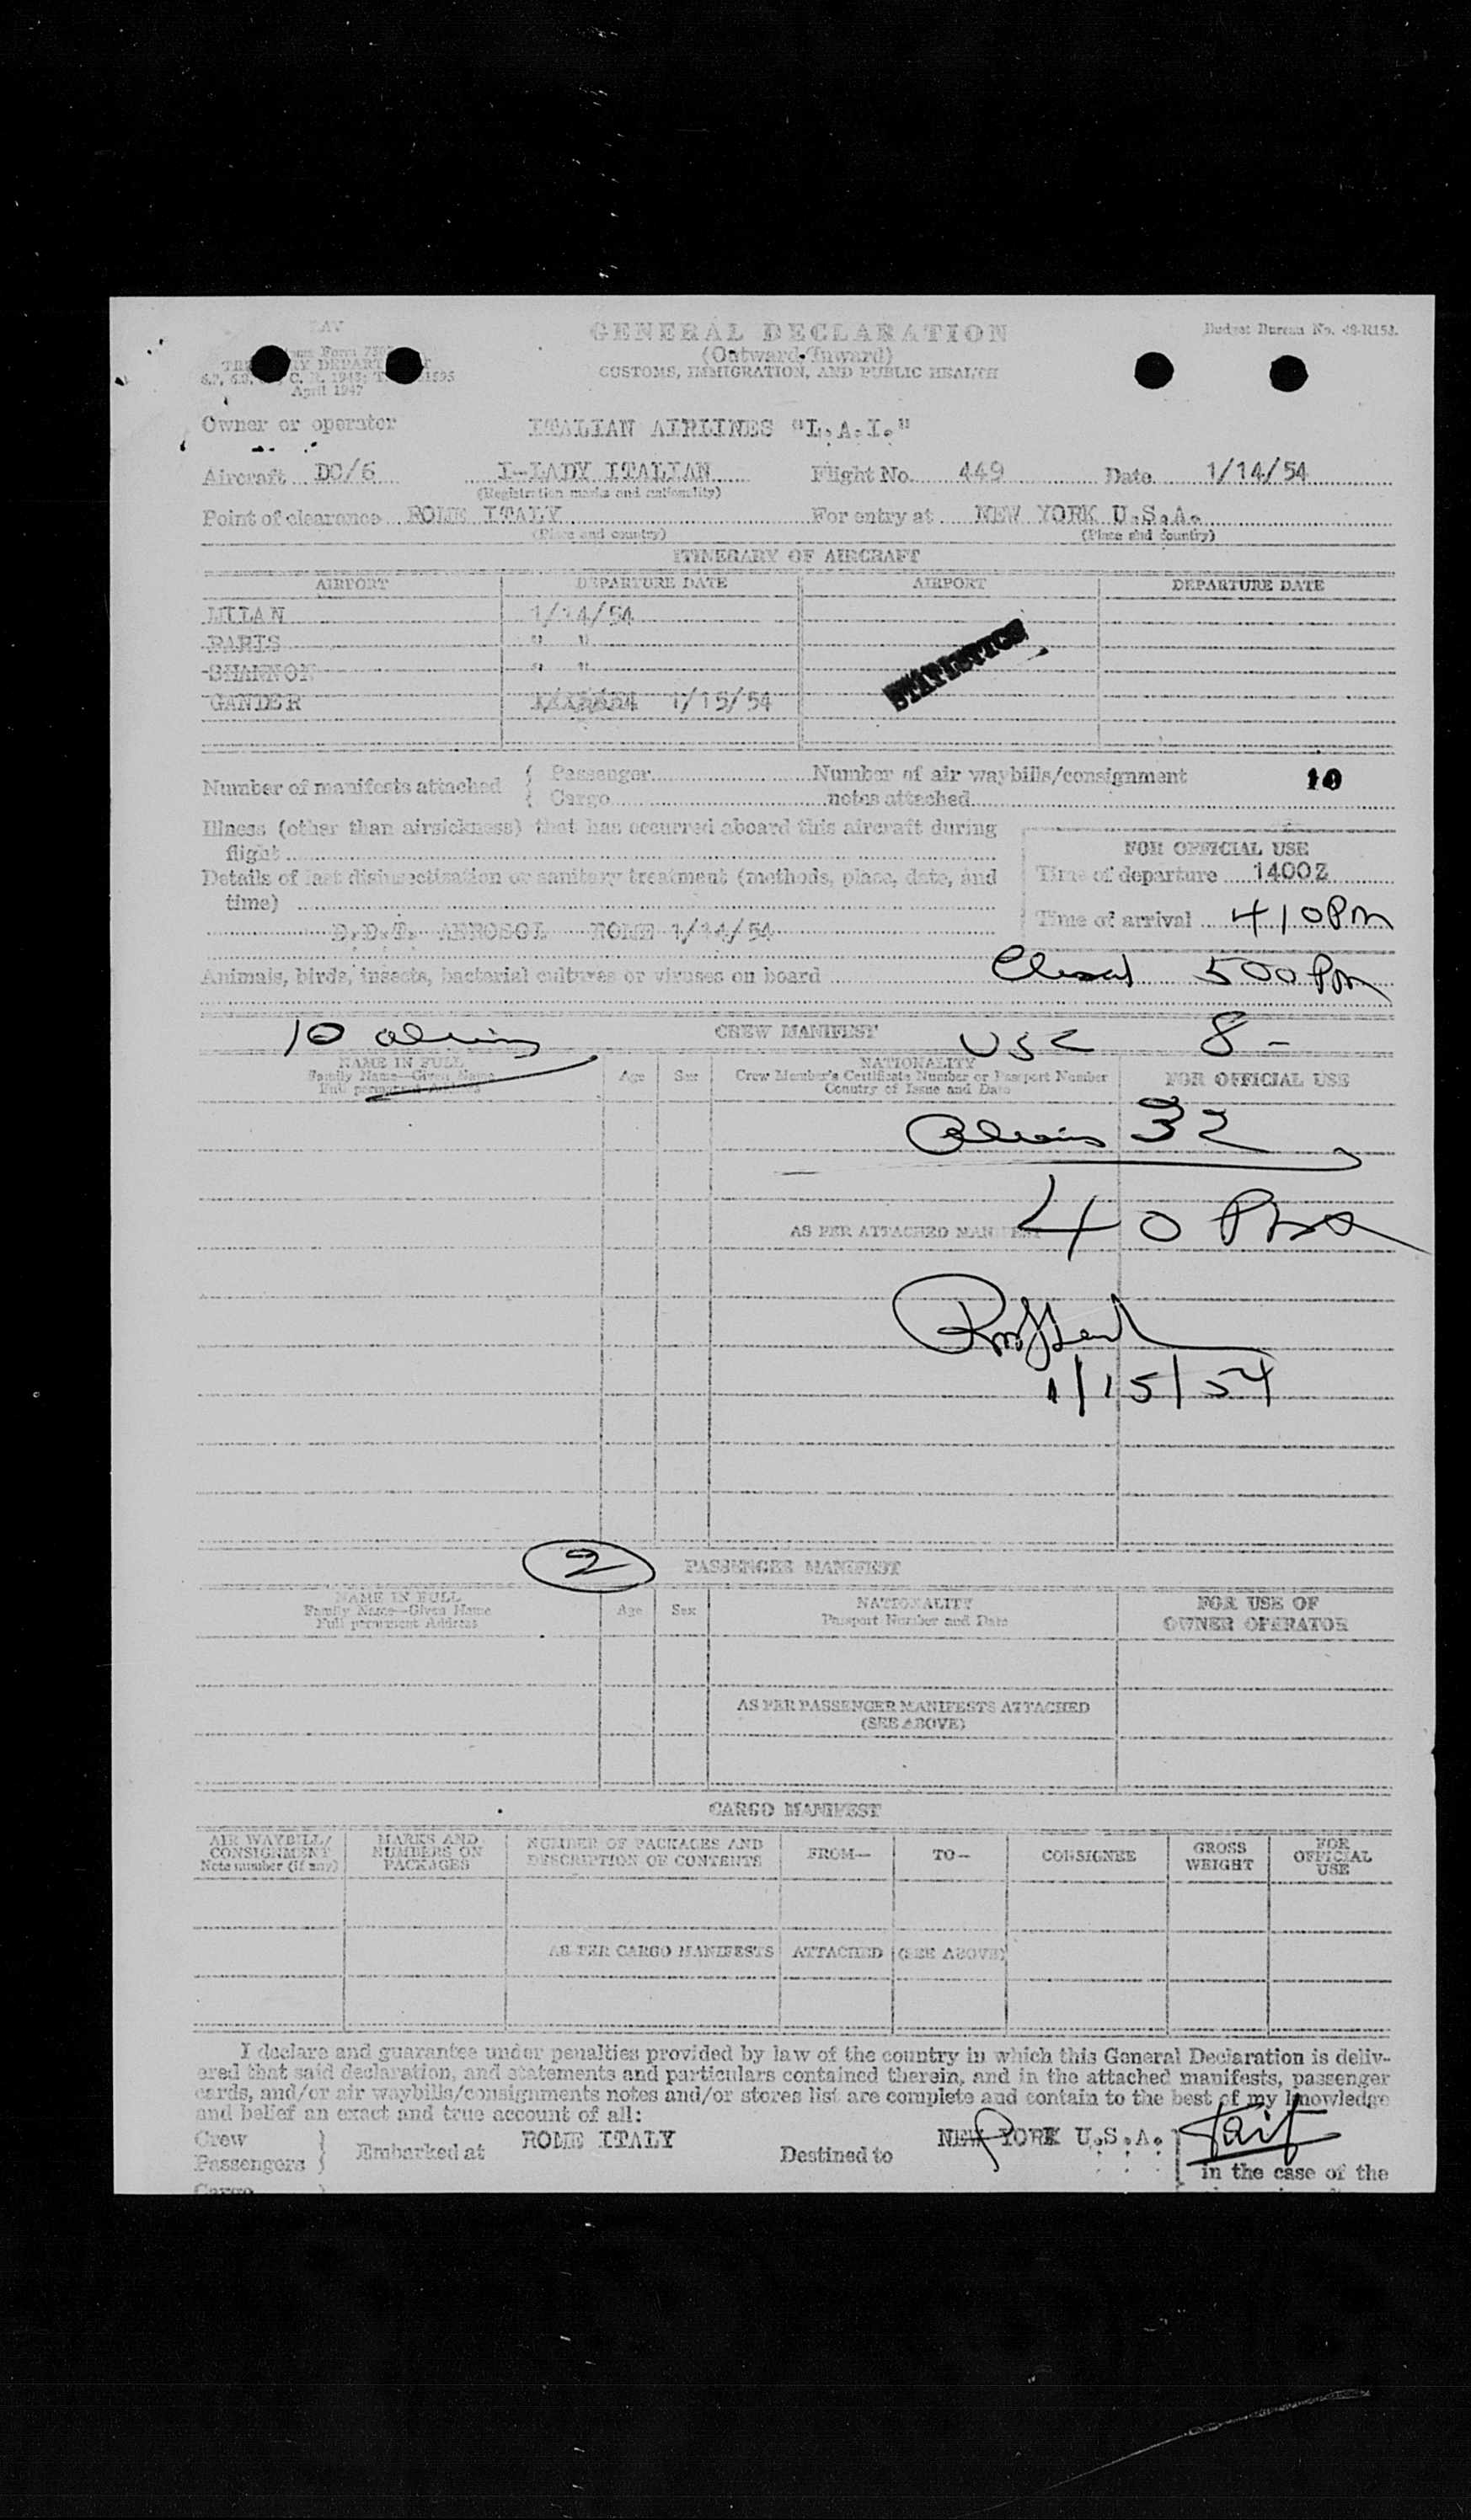 GENERAL DECLARATION
(Outward-Inward)
CUSTOMS, IMMIGRATION, AND PUBLIC HEALTH
Budget Bureau No.
April 1947
Owner or operator ITALIAN AIRLINES "L.A.I."
Aircraft DC/6 I-LADY ITALIAN Flight No. 449 Date 1/14/54
(Registration marks and nationality)
Point of clearance ROME ITALY For entry at NEW YORK U.S.A.
(Place and country) (Place and country)
ITINERARY OF AIRCRAFT
AIRPORT DEPARTURE DATE AIRPORT DEPARTURE DATE
MILAN 1/14/54
PARIS " "
SHANNON " "
GANDER 1/15/54
STATISTICS
Number of manifests attached { Passenger Number of air waybills/consignment 10
{ Cargo notes attached
Illness (other than airsickness) that has occurred aboard this aircraft during
flight
FOR OFFICIAL USE
Details of last disinsectization or sanitary treatment (methods, place, date, and
time)
Time of departure 1400Z
Time of arrival 410 Pm
D.D.T. AEROSOL ROME 1/14/54
Animals, birds, insects, bacterial cultures or viruses on board
500 Pm
10
CREW MANIFEST
USC 8-
NAME IN FULL
Family Name—Given Name
Full permanent Address
Age Sex
NATIONALITY
Crew Member's Certificate Number or Passport Number
Country of Issue and Date
FOR OFFICIAL USE
Aliens 32
AS PER ATTACHED MANIFEST
40
1/15/54
2
PASSENGER MANIFEST
NAME IN FULL
Family Name—Given Name
Full permanent Address
Age Sex
NATIONALITY
Passport Number and Date
FOR USE OF
OWNER OPERATOR
AS PER PASSENGER MANIFESTS ATTACHED
(SEE ABOVE)
CARGO MANIFEST
AIR WAYBILL/
CONSIGNMENT
Note number (if any)
MARKS AND
NUMBERS ON
PACKAGES
NUMBER OF PACKAGES AND
DESCRIPTION OF CONTENTS
FROM—
TO—
CONSIGNEE
GROSS
WEIGHT
FOR
OFFICIAL
USE
AS PER CARGO MANIFESTS ATTACHED (SEE ABOVE)
I declare and guarantee under penalties provided by law of the country in which this General Declaration is deliv-
ered that said declaration, and statements and particulars contained therein, and in the attached manifests, passenger
cards, and/or air waybills/consignments notes and/or stores list are complete and contain to the best of my knowledge
and belief an exact and true account of all:
Crew
Passengers } Embarked at ROME ITALY Destined to NEW YORK U.S.A.
in the case of the
Cargo